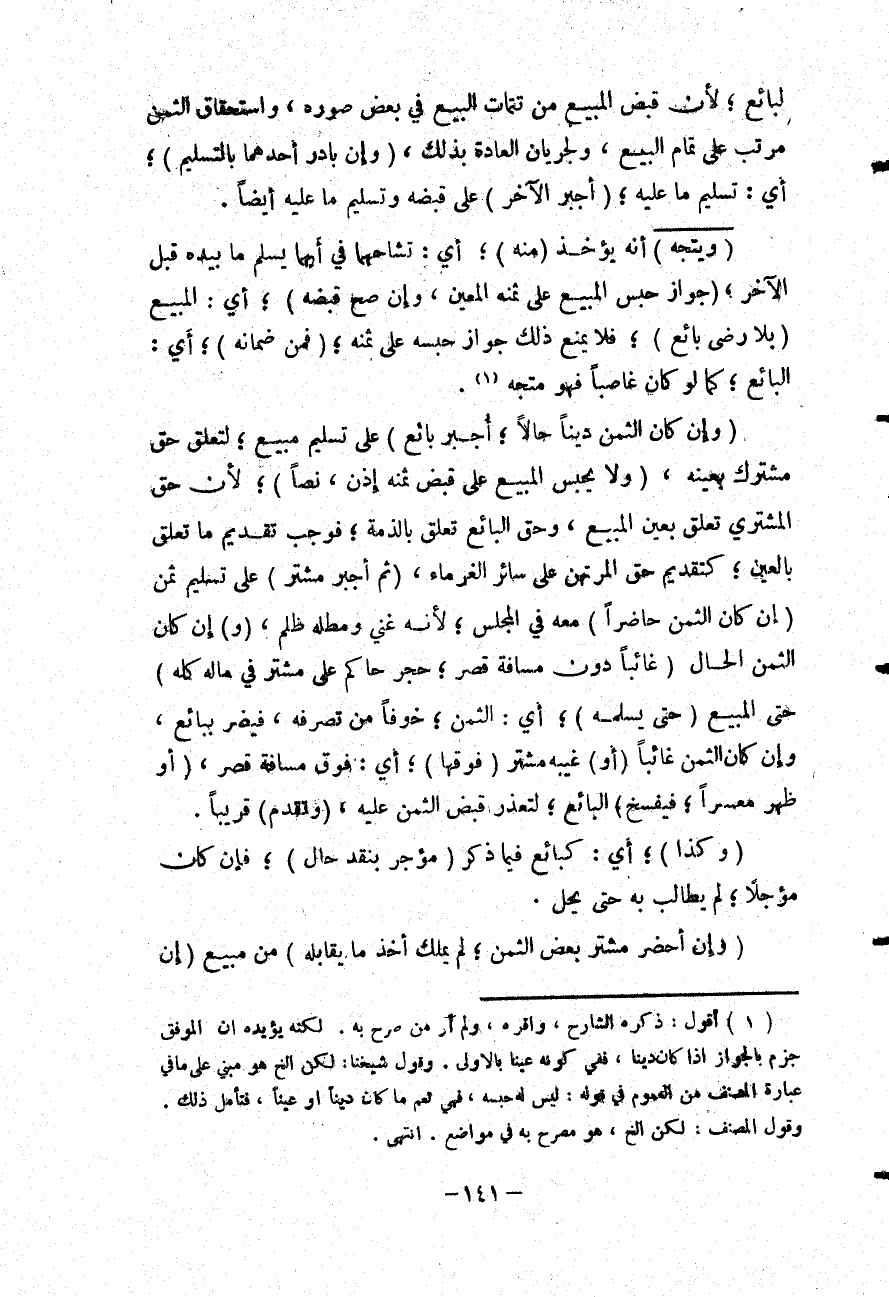 لبائع ؛ لأن قبض المبيع من تتمات البيع في بعض صوره ، واستحقاق الثمن
مرتب على تمام البيع ، ولجريان العادة بذلك ، ( وإن بادر أحدهما بالتسليم ) ؛
أي : تسليم ما عليه ؛ ( أجبر الآخر ) على قبضه وتسليم ما عليه أيضاً .
( ويتجه ) أنه يؤخذ (منه ) ؛ أي : تشاحهما في أيهما يسلم ما بيده قبل
الآخر ؛ (جواز حبس المبيع على ثمنه المعين ، وإن صح قبضه ) ؛ أي : المبيع
( بلا رضى بائع ) ؛ فلا يمنع ذلك جواز حبسه على ثمنه ؛ ( فمن ضمانه ) ؛ أي :
البائع ؛ كما لو كان غاصباً فهو متجه (١) .
( وإن كان الثمن ديناً حالاً ؛ أُجبر بائع ) على تسليم مبيع ؛ لتعلق حق
مشترك بعينه ، ( ولا يحبس المبيع على قبض ثمنه إذن ، نصاً ) ؛ لأن حق
المشتري تعلق بعين المبيع ، وحق البائع تعلق بالذمة ؛ فوجب تقديم ما تعلق
بالعين ؛ كتقديم حق المرتهن على سائر الغرماء ، (ثم أجبر مشتر ) على تسليم ثمن
( إن كان الثمن حاضراً ) معه في المجلس ؛ لأنه غني ومطله ظلم ، (و) إن كان
الثمن الحال ( غائباً دون مسافة قصر ؛ حجر حاكم على مشتر في ماله كله )
حتى المبيع ( حتى يسلمه ) ؛ أي : الثمن ؛ خوفاً من تصرفه ، فيضر ببائع ،
وإن كان الثمن غائباً (أو) غيبه مشتر ( فوقها ) ؛ أي : فوق مسافة قصر ، ( أو
ظهر معسراً ؛ فيفسخ) البائع ؛ لتعذر قبض الثمن عليه ، (وتقدم) قريباً .
( وكذا ) ؛ أي : كبائع فيما ذكر ( مؤجر بنقد حال ) ؛ فإن كان
مؤجلًا ؛ لم يطالب به حتى يحل .
( وإن أحضر مشتر بعض الثمن ؛ لم يملك أخذ ما يقابله ) من مبيع ( إن
( ١ ) أقول : ذكره الشارح ، واقره ، ولم أر من صرح به . لكنه يؤيده ان الموفق
جزم بالجواز اذا كان دينا ، ففي كونه عينا بالاولى . وقول شيخنا : لكن الخ هو مبني على ما في
عبارة المصنف من العموم في قوله : ليس له حبسه ، فهي تعم ما كان ديناً او عيناً ، فتأمل ذلك .
وقول المصنف : لكن الخ ، هو مصرح به في مواضع . انتهى .
– ١٤١ –